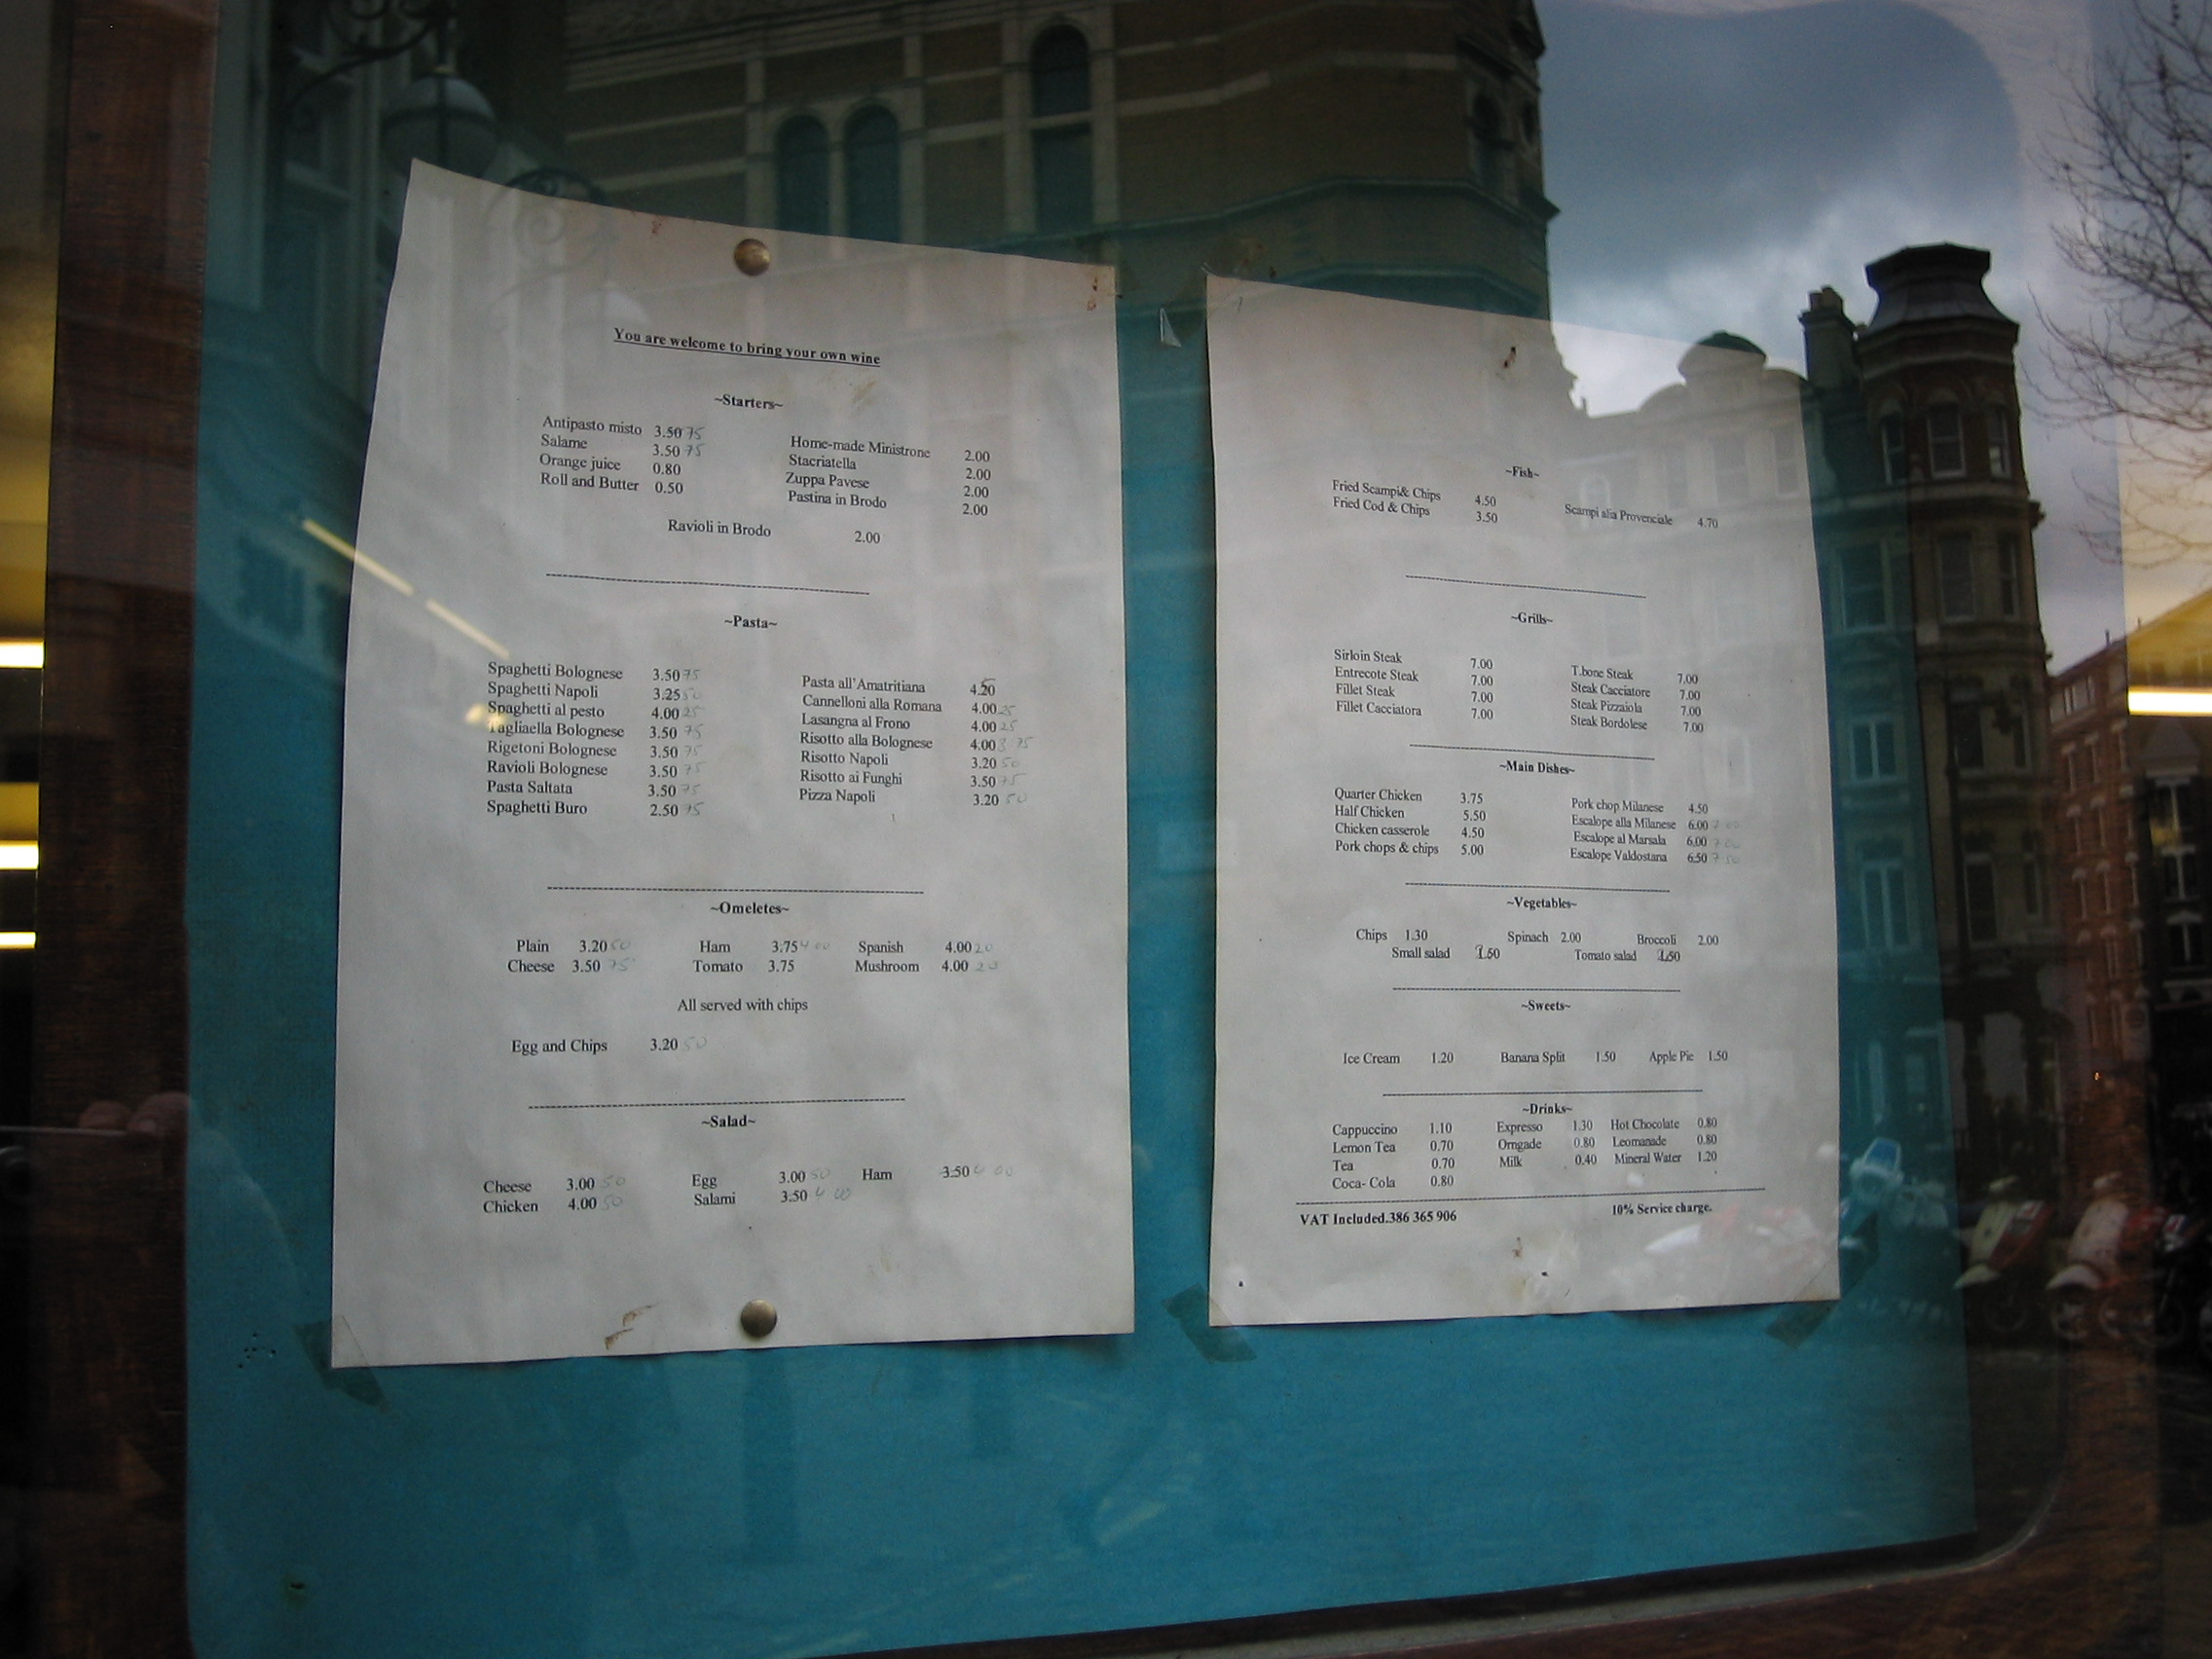 You are welcome to bring your own wine
~Starters~
Antipasto misto 3.50 75 Home-made Ministrone 2.00
Salame 3.50 75 Stacriatella 2.00
Orange juice 0.80 Zuppa Pavese 2.00
Roll and Butter 0.50 Pastina in Brodo 2.00
Ravioli in Brodo 2.00
~Pasta~
Spaghetti Bolognese 3.50 75 Pasta all'Amatritiana 4.20
Spaghetti Napoli 3.25 50 Cannelloni alla Romana 4.00 25
Spaghetti al pesto 4.00 25 Lasangna al Frono 4.00 25
Tagliaella Bolognese 3.50 75 Risotto alla Bolognese 4.00 3 75
Rigetoni Bolognese 3.50 75 Risotto Napoli 3.20 50
Ravioli Bolognese 3.50 75 Risotto ai Funghi 3.50 75
Pasta Saltata 3.50 75 Pizza Napoli 3.20 50
Spaghetti Buro 2.50 75
~Omeletes~
Plain 3.20 50 Ham 3.75 4 00 Spanish 4.00 20
Cheese 3.50 75 Tomato 3.75 Mushroom 4.00 20
All served with chips
Egg and Chips 3.20 50
~Salad~
Cheese 3.00 50 Egg 3.00 50 Ham 3.50 4 00
Chicken 4.00 50 Salami 3.50 4 00
~Fish~
Fried Scampi& Chips 4.50 Scampi alia Provenciale 4.70
Fried Cod & Chips 3.50
~Grills~
Sirloin Steak 7.00 T.bone Steak 7.00
Entrecote Steak 7.00 Steak Cacciatore 7.00
Fillet Steak 7.00 Steak Pizzaiola 7.00
Fillet Cacciatora 7.00 Steak Bordolese 7.00
~Main Dishes~
Quarter Chicken 3.75 Pork chop Milanese 4.50
Half Chicken 5.50 Escalope alla Milanese 6.00 7 00
Chicken casserole 4.50 Escalope al Marsala 6.00 7 00
Pork chops & chips 5.00 Escalope Valdostana 6.50 7 50
~Vegetables~
Chips 1.30 Spinach 2.00 Broccoli 2.00
Small salad Tomato salad
~Sweets~
Ice Cream 1.20 Banana Split 1.50 Apple Pie 1.50
~Drinks~
Cappuccino 1.10 Expresso 1.30 Hot Chocolate 0.80
Lemon Tea 0.70 Orngade 0.80 Leomanade 0.80
Tea 0.70 Milk 0.40 Mineral Water 1.20
Coca- Cola 0.80
VAT Included.386 365 906 10% Service charge.